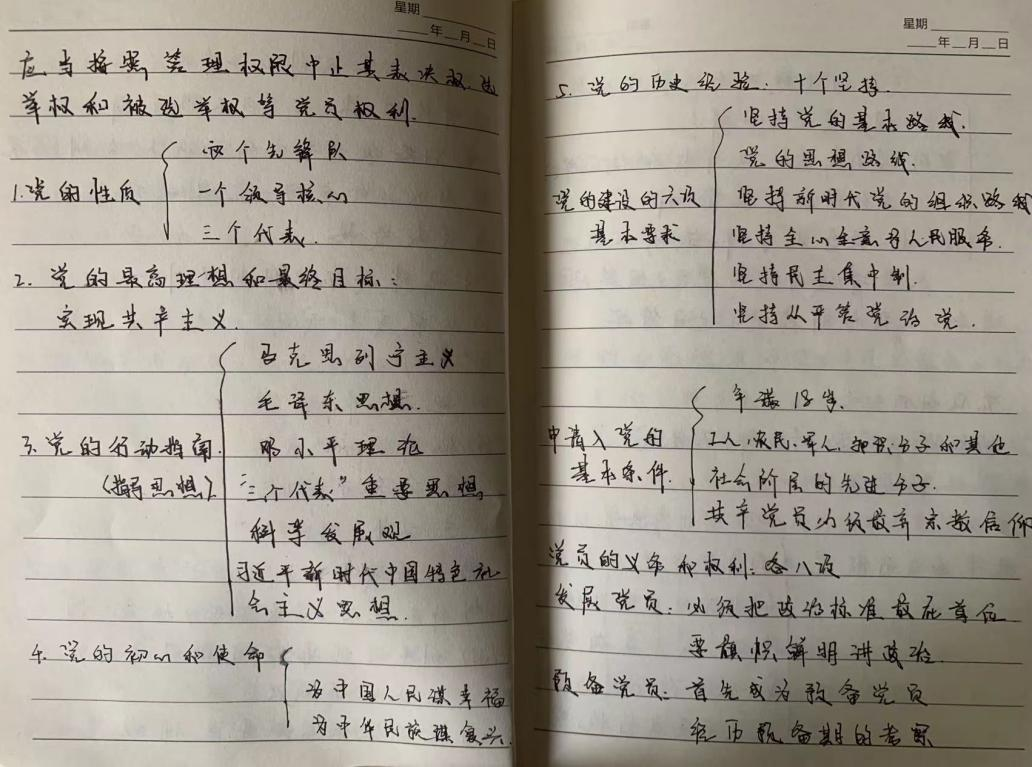 星期
年 月 日
应当按照管理权限中止其表决权、选
举权和被选举权等党员权利.
1.党的性质
两个先锋队
一个领导核心
三个代表.
2. 党的最高理想和最终目标:
实现共产主义.
3. 党的行动指南
(指导思想)
马克思列宁主义
毛泽东思想.
邓小平理论
"三个代表"重要思想.
科学发展观
习近平新时代中国特色社
会主义思想.
4. 党的初心和使命
为中国人民谋幸福
为中华民族谋复兴.
星期
年 月 日
5. 党的历史经验: 十个坚持.
党的建设的六项
基本要求
坚持党的基本路线.
党的思想路线.
坚持新时代党的组织路线
坚持全心全意为人民服务.
坚持民主集中制.
坚持从严管党治党.
申请入党的
基本条件.
年满18岁.
工人、农民、军人、知识分子和其他
社会阶层的先进分子.
共产党员必须放弃宗教信仰
党员的义务和权利: 各八项
发展党员: 必须把政治标准放在首位
要旗帜鲜明讲政治.
预备党员: 首先成为预备党员
经历预备期的考察